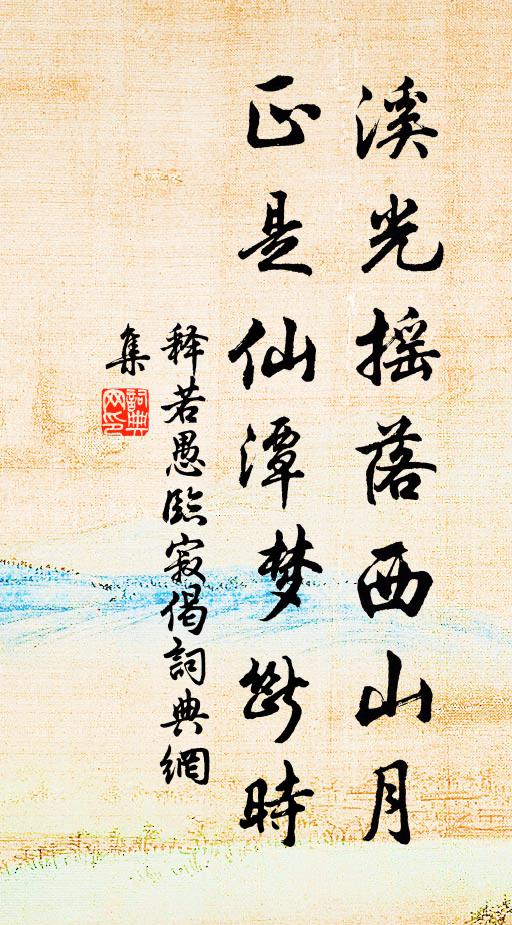 溪光摇落西山月
正是仙潭梦断时
释若愚臨寂偈詞典網
集
詞典
网印